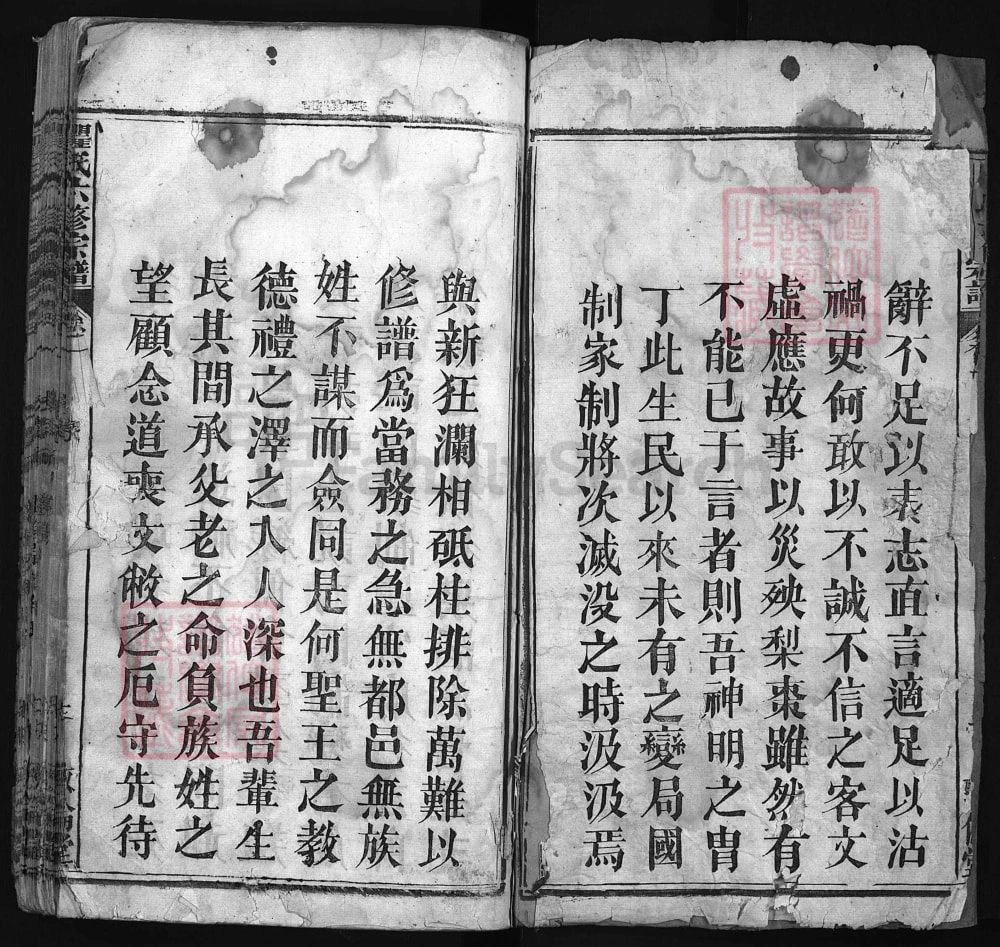 辭不足以表志直言適足以沽
禍更何敢以不誠不信之客文
虛應故事以災殃梨棗雖然有
不能已于言者則吾神明之胄
丁此生民以來未有之變局國
制家制將次滅没之時汲汲焉
與新狂瀾相砥柱排除萬難以
修譜爲當務之急無都邑無族
姓不謀而僉同是何聖王之教
德禮之澤之入人深也吾輩生
長其間承父老之命負族姓之
望顧念道喪文敝之厄守先待
氏六修宗譜
宗譜
FamilySearch